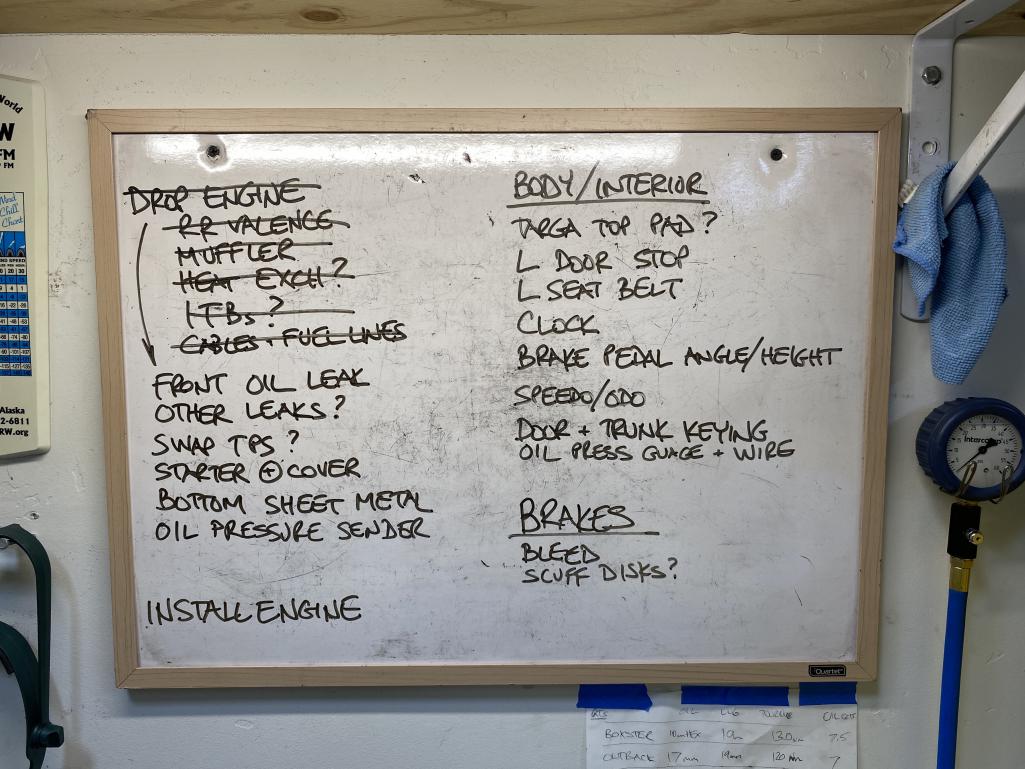 DROP ENGINE
RR VALENCE
MUFFLER
HEAT EXCH?
ITBs?
CABLES + FUEL LINES
FRONT OIL LEAK
OTHER LEAKS?
SWAP TPS?
STARTER ⊕ COVER
BOTTOM SHEET METAL
OIL PRESSURE SENDER
INSTALL ENGINE
BODY/INTERIOR
TARGA TOP PAD?
L DOOR STOP
L SEAT BELT
CLOCK
BRAKE PEDAL ANGLE/HEIGHT
SPEEDO/ODO
DOOR + TRUNK KEYING
OIL PRESS GUAGE + WIRE
BRAKES
BLEED
SCUFF DISKS?
Quartet
BOXSTER 10mm HEX 19m 130 nm 7.5
OUTBACK 17mm 19mm 120 nm 7
World
W
FM
FM
Wind
Chill
Chart
Alaska
2-6811
RW.org
intercomp